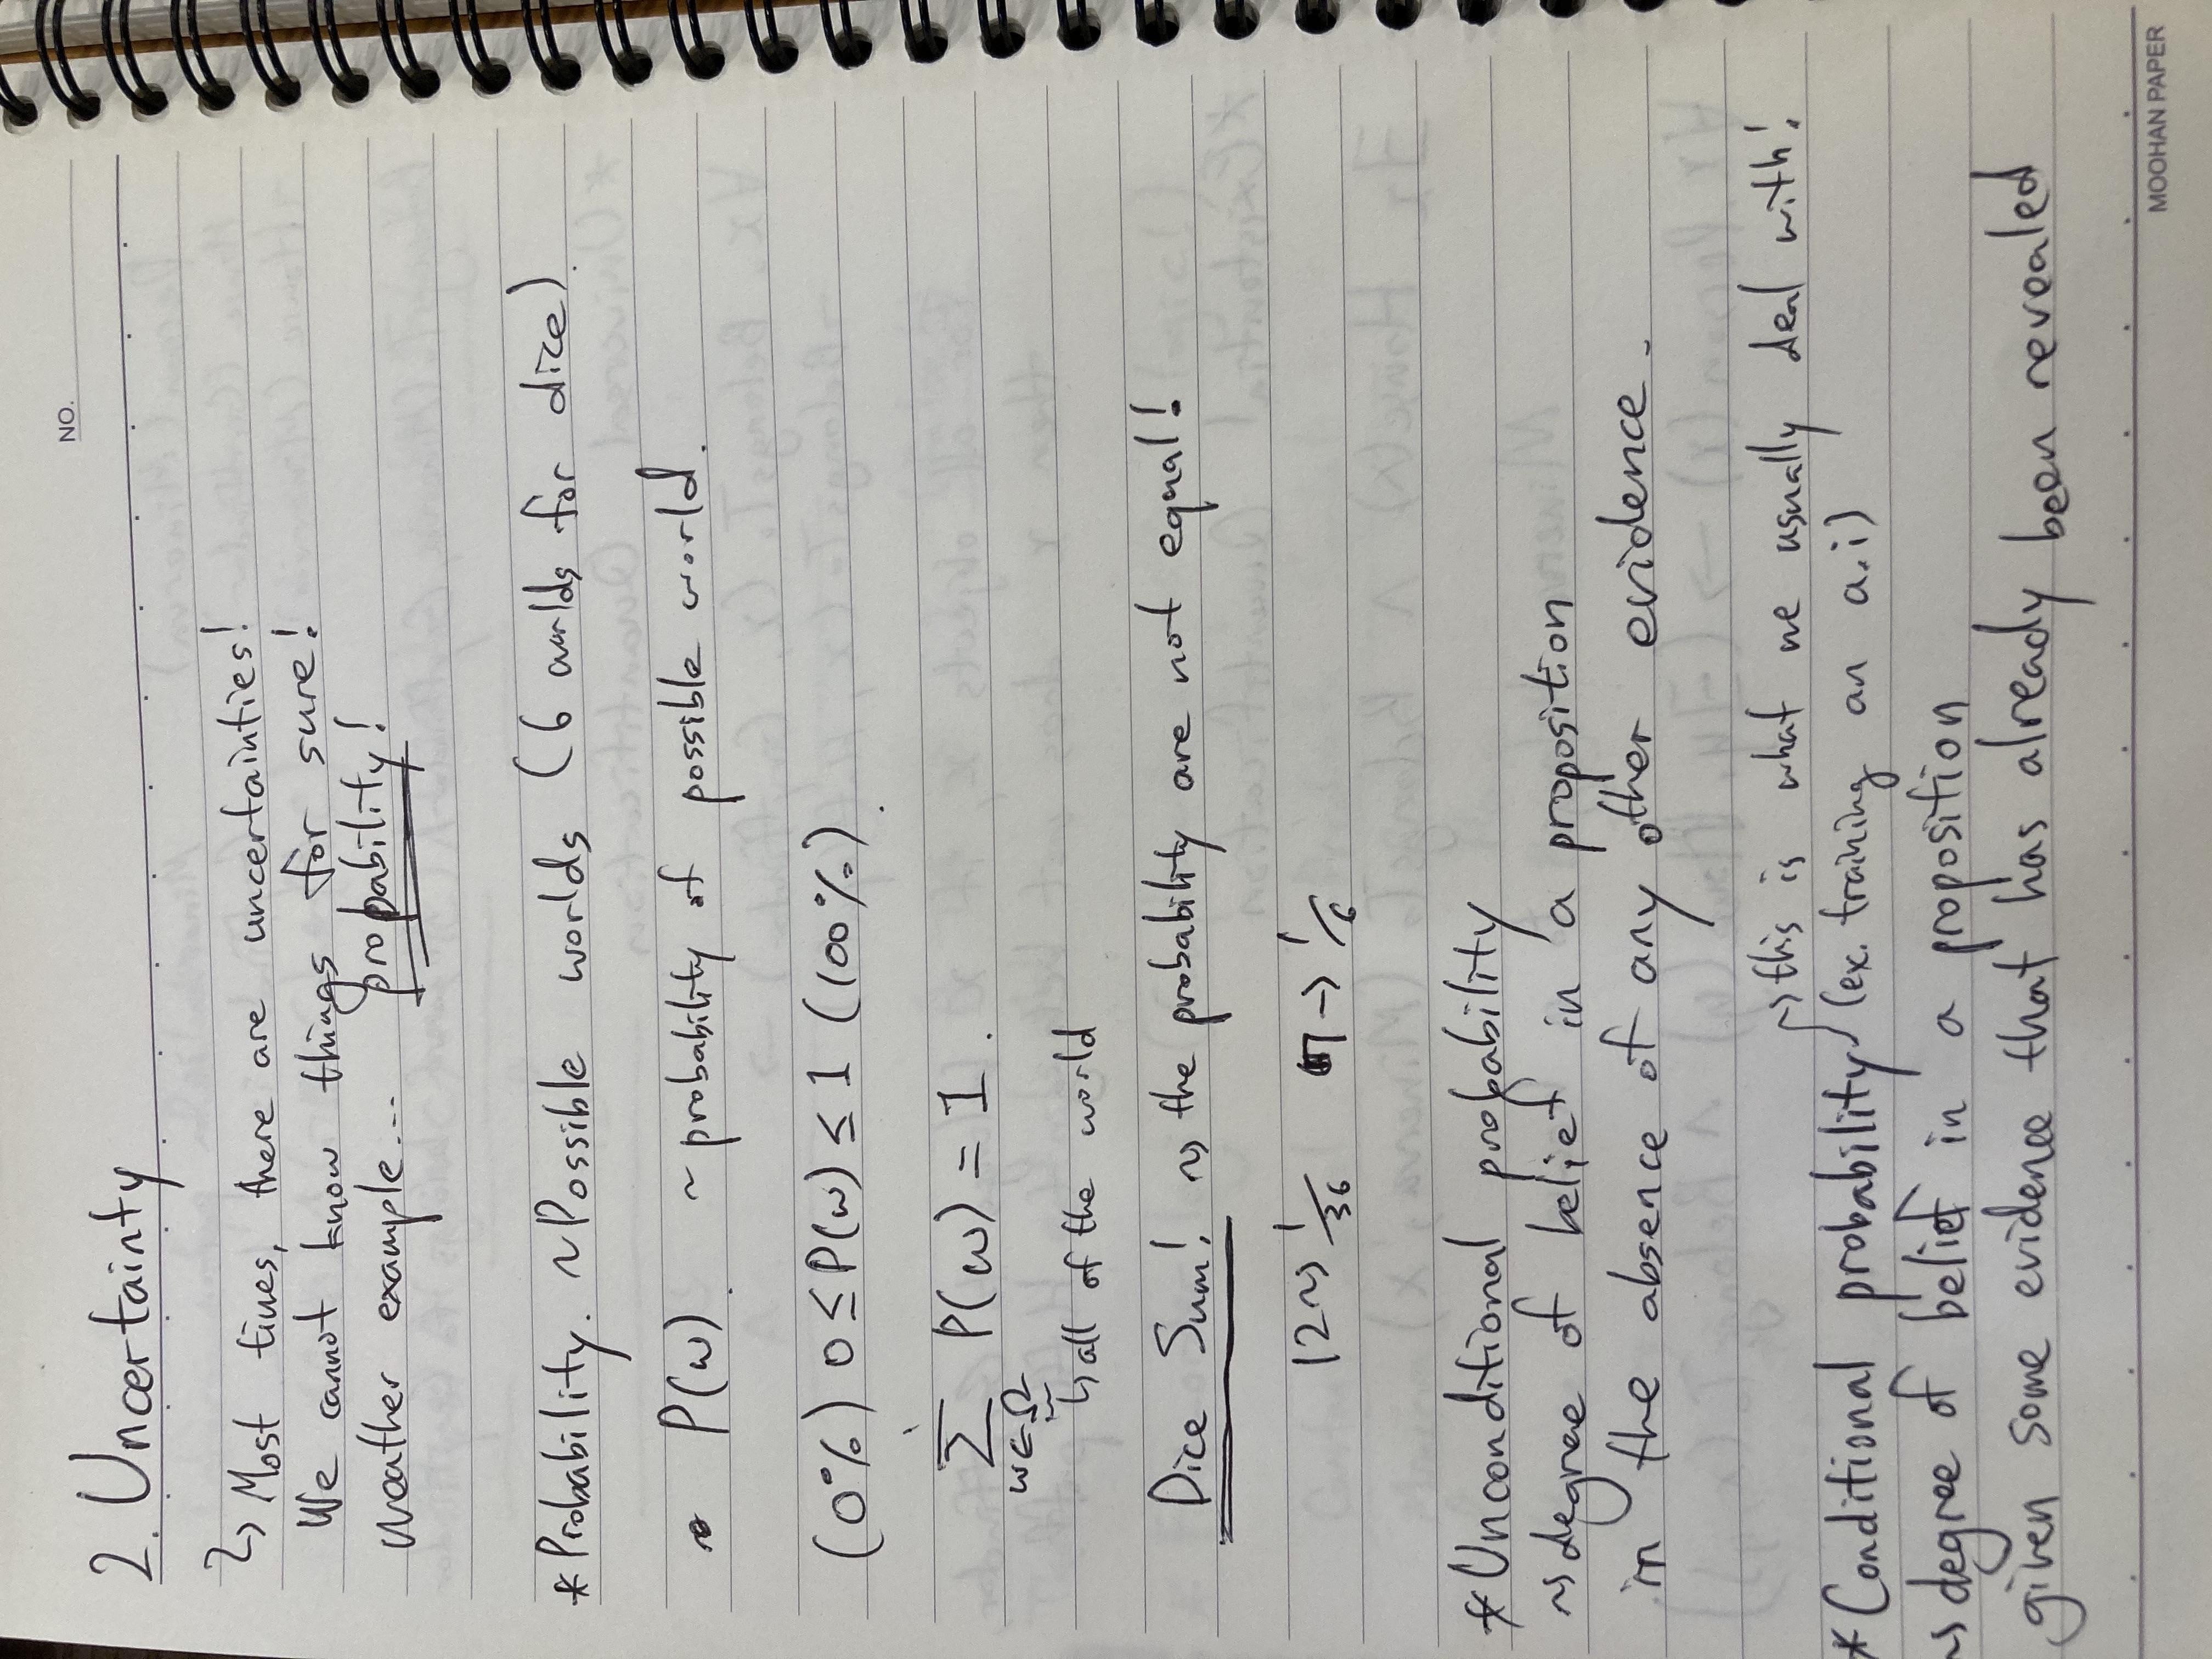 NO.
2. Uncertainty
↳ Most times, there are uncertainties!
We cannot know things for sure!
weather example... probability!
*Probability. ~Possible worlds (6 worlds for dice).
P(ω). ~probability of possible world.
(0%) 0 ≤ P(ω) ≤ 1 (100%).
∑ P(ω) = 1.
ω∈Ω
↳ all of the world
Dice Sum! ⇝ the probability are not equal!
12 ⇝ 1/36 7 → 1/6
*Unconditional probability
⇝ degree of belief in a proposition
in the absence of any other evidence.
⇝ this is what we usually deal with!
*Conditional probability (ex. training an a.i)
⇝ degree of belief in a proposition
given some evidence that has already been revealed
MOOHAN PAPER